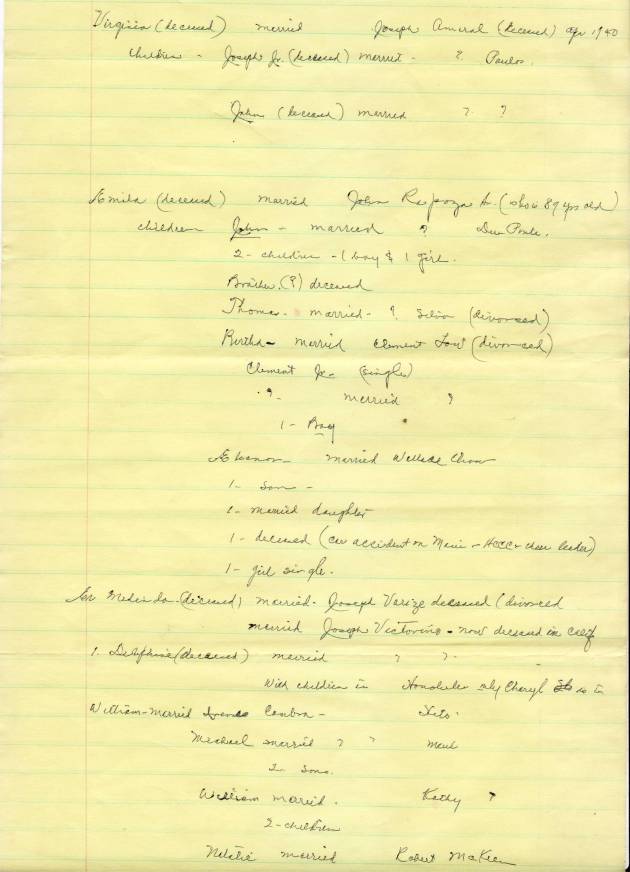 Virginia (deceased) married Joseph Amaral (deceased) Apr 1940
children - Joseph Jr. (deceased) married - ? Paulos.
John (deceased) married ? ?
Emilia (deceased) married John Rapoza Sr. (also is 89 yrs old)
children John - married ? Du Ponte.
2 - children - 1 boy & 1 girl.
Brother (?) deceased
Thomas - married - ? Silva (divorced)
Bertha - married Clement Low (divorced)
Clement Jr. (single)
? - married ?
1 - Boy
Eleanor - married Chow
1 - son -
1 - married daughter
1 - deceased (car accident on Maui - HCC - cheer leader)
1 - girl single.
(deceased) married - Joseph deceased (divorced
married Joseph Victorino - now deceased in Calif
1. Delphine (deceased) married ? ? -
With children in Honolulu only Cheryl is in
William - married - Hilo.
Michael married ? ? Maui
2 sons.
William married. Kathy ?
2 - children
Natalie married Robert McKeen